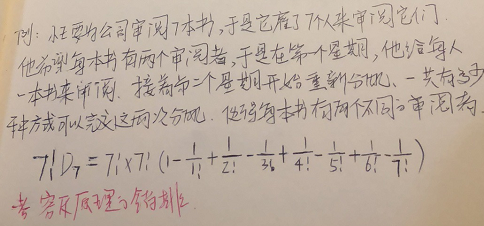 例：小王要为公司审阅7本书，于是它雇了7个人来审阅它们.
他希望每本书有两个审阅者，于是在第一个星期，他给每人
一本书来审阅. 接着第二个星期开始重新分配、一共有多少
种方式可以完成这两次分配. 使得每本书有两个不同的审阅者.
7!D₇ = 7!×7! (1 - 1/1! + 1/2! - 1/3! + 1/4! - 1/5! + 1/6! - 1/7!)
考 容斥原理的错排.